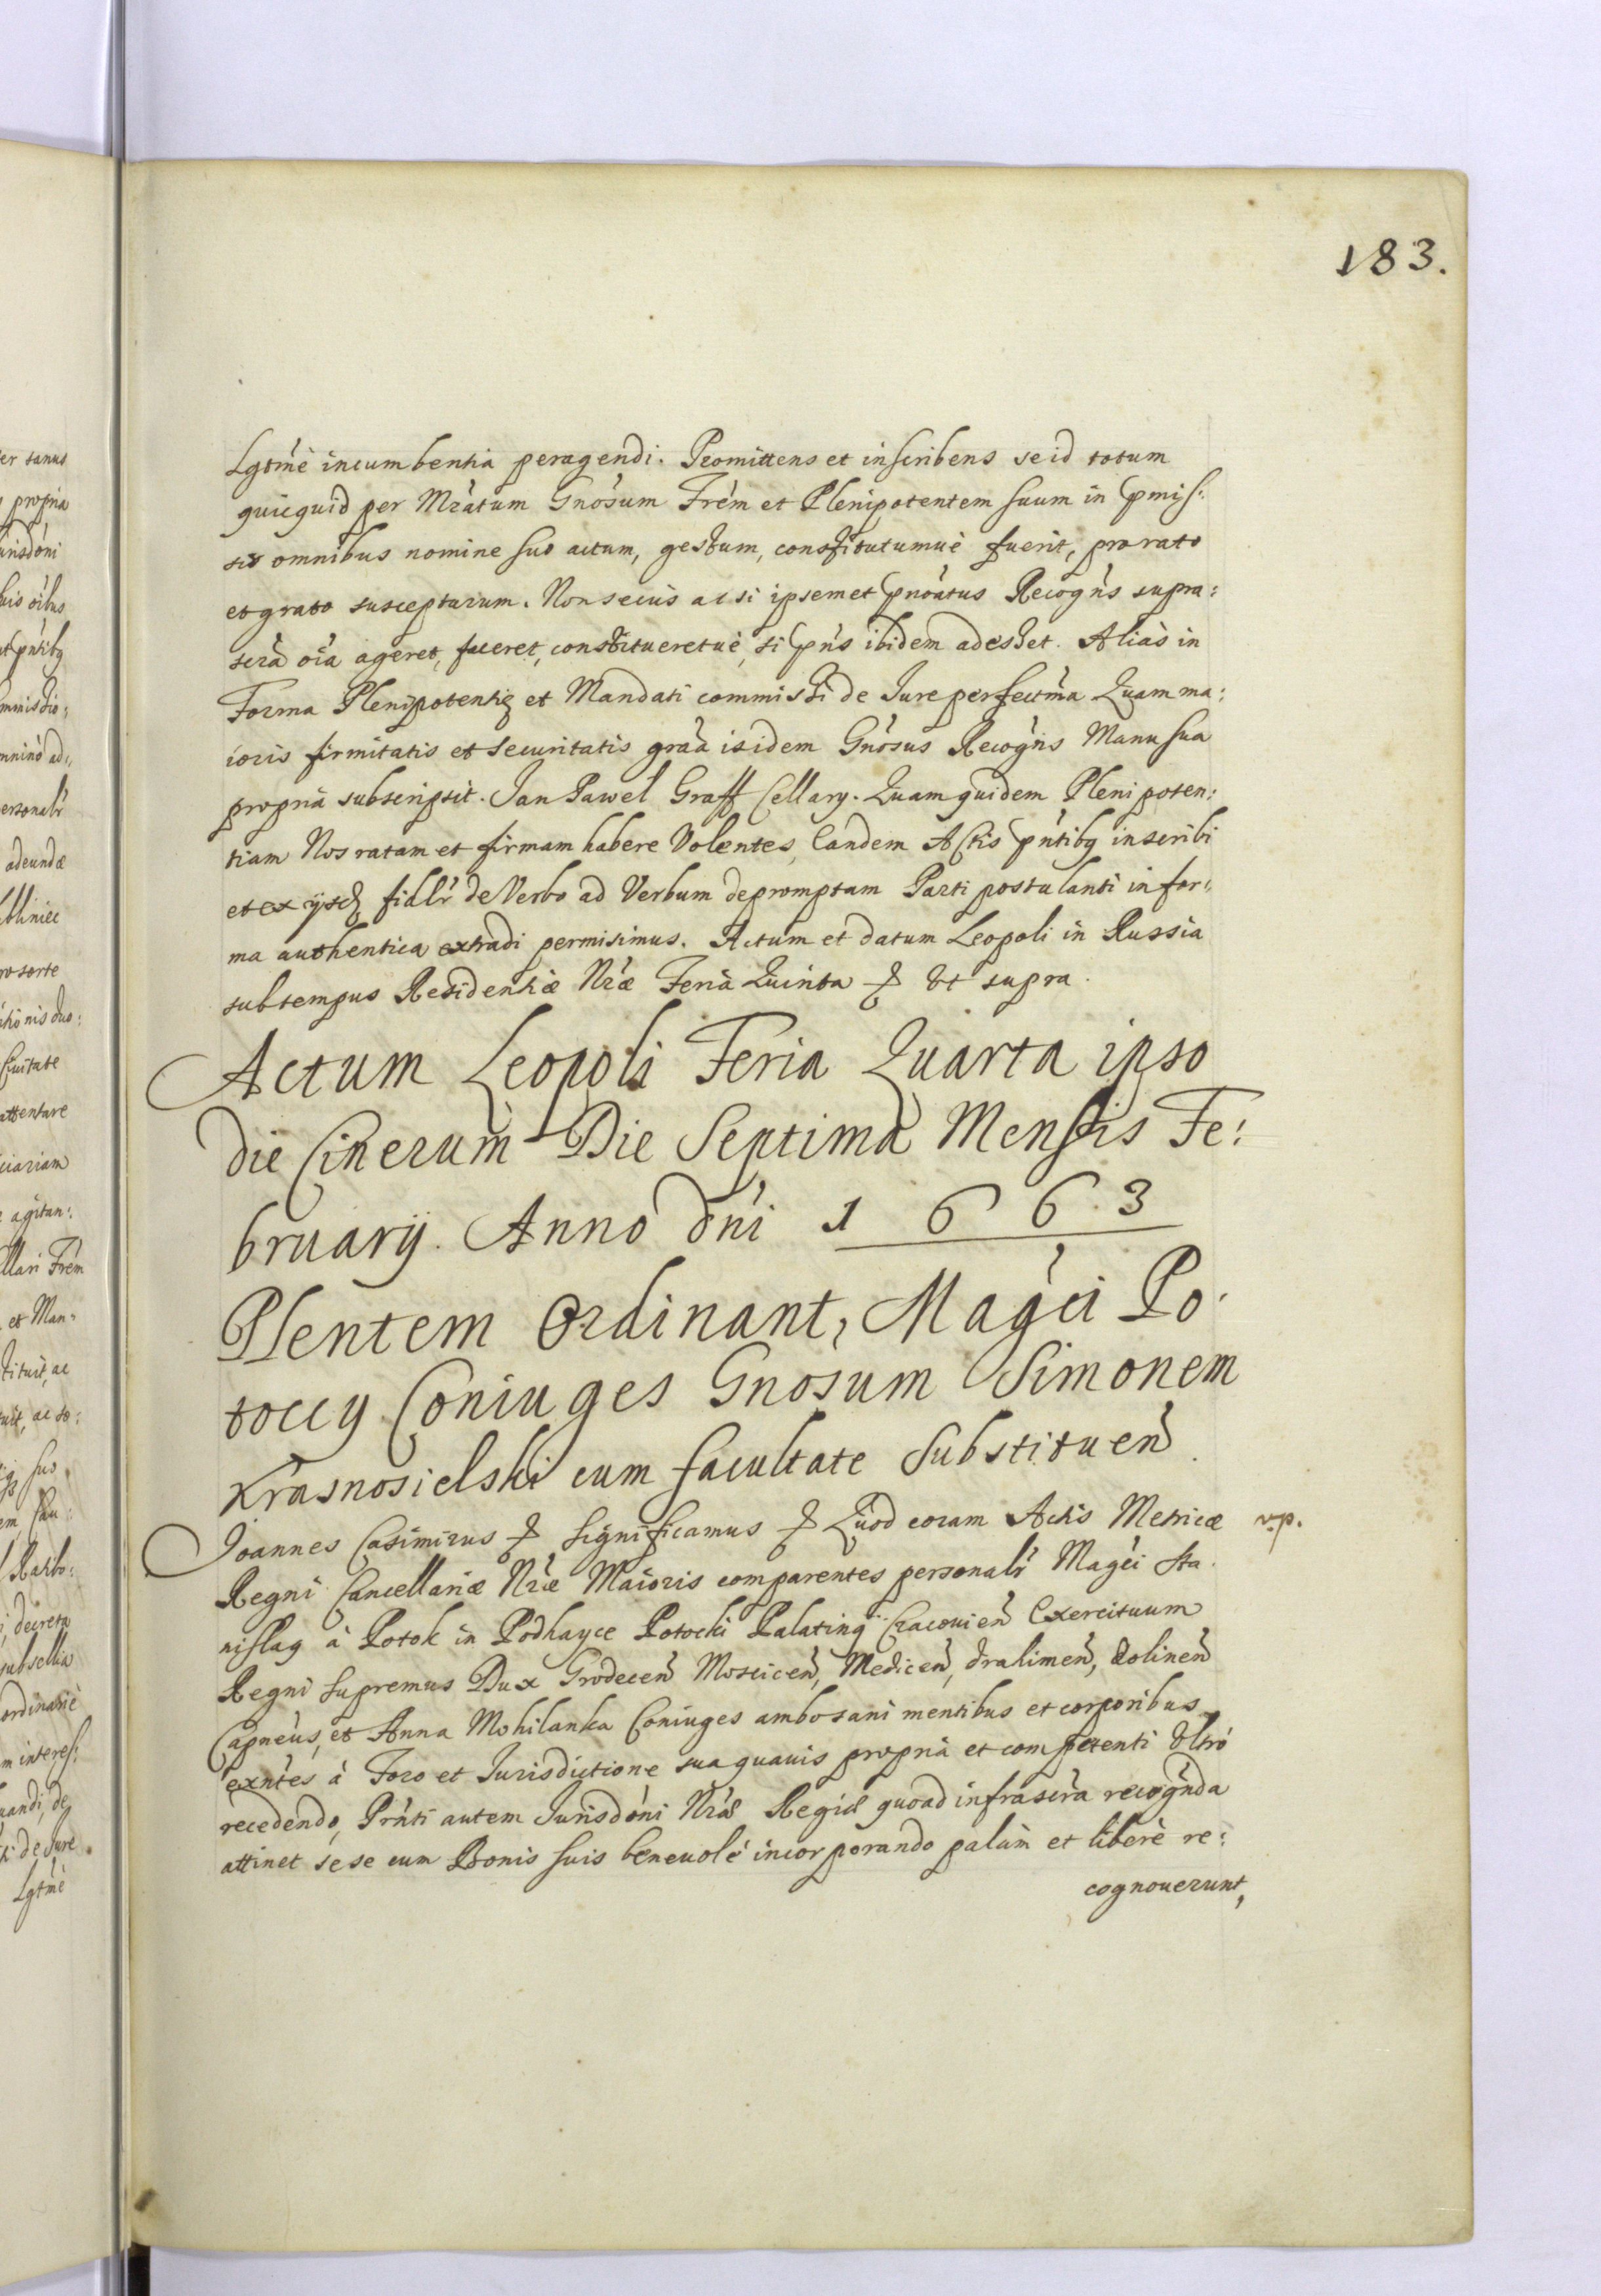 183.
Lgtmè incumbentia peragendi. Promittens et inscribens se id totum
quicquid per Mràtum Gnòsum Frèm et Plenipotentem suum in pmiss:
sis omnibus nomine suo actum, gestum, constitutumuè fuerit, pro rato
et grato suscepturum. Non secùs ac si ipsemet pnòatus Recogǹs supra:
scrà oìa ageret, faceret, constitueretuè, si pǹs ibidem adesset. Aliàs in
Forma Plenipotentię et Mandati commissi de Iure perfectm̀a Quam ma:
ioris firmitatis et securitatis graà isidem Gnòsus Recogǹs Manu sua
proprià subscripsit. Jan Paweł Graff Cellary. Quam quidem Plenipoten:
tiam Nos ratam et firmam habere Volentes, Eandem Actis pǹtibq inscribi
et ex ijsdę fidlr̀ de Verbo ad Verbum depromptam Parti postulanti in for:
ma authentica extradi permisimus. Actum et datum Leopoli in Russia
sub tempus Residentiæ Nr̀æ Ferià Quinta & Ut supra.
Actum Leopoli Feria Quarta ipso
die Cinerum Die Septima Mensis Fe:
bruarij. Anno dńi 1663
Plentem Ordinant, Magci Po:
toccy Coniuges Gnosum Simonem
Krasnosielski cum facultate Substituen̄
Joannes Casimirus & significamus & Quod coram Actis Metricæ v.p.
Regni Cancellariæ Nr̀æ Maioris comparentes personalr̀ Magci Sta:
nislaq à Potok in Podhayce Potocki Palatinq Cracouien̄ Exercituum
Regni supremus Dux Grodecen̄ Moscicen̄, Medicen̄, dralimen̄, Dolinen̄
Capneùs, et Anna Mohilanka Coniuges ambo sani mentibus et corporibus
exǹtes à Foro et Iurisdictione sua quauis proprià et competenti Ultrò
recedendo, Prǹti autem Iurisdòni Nr̀æ Regiæ quoad infrascrà recogǹda
attinet sese cum Bonis suis beneuolè incorporando palàm et liberè re:
cognouerunt,